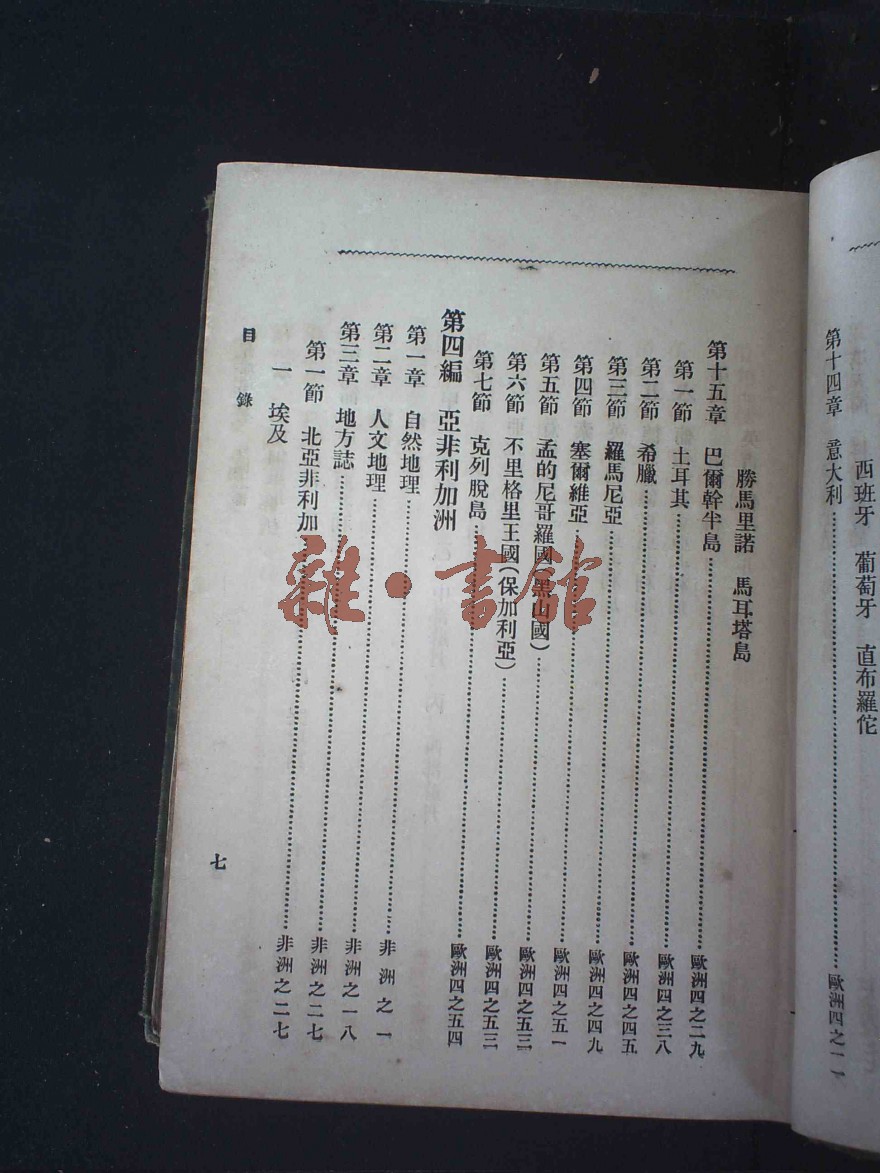 西班牙 葡萄牙 直布羅佗
第十四章 意大利⋯⋯歐洲四之一一
勝馬里諾 馬耳塔島
第十五章 巴爾幹半島⋯⋯歐洲四之二九
第一節 土耳其⋯⋯歐洲四之三八
第二節 希臘⋯⋯歐洲四之四五
第三節 羅馬尼亞⋯⋯歐洲四之四九
第四節 塞爾維亞⋯⋯歐洲四之五一
第五節 孟的尼哥羅國(黑山國)⋯⋯歐洲四之五三
第六節 不里格里王國(保加利亞)⋯⋯歐洲四之五三
第七節 克列脫島⋯⋯歐洲四之五四
第四編 亞非利加洲
第一章 自然地理
第二章 人文地理⋯⋯非洲之一
第三章 地方誌⋯⋯非洲之一八
第一節 北亞非利加⋯⋯非洲之二七
一 埃及⋯⋯非洲之二七
目錄
七
雜·書館